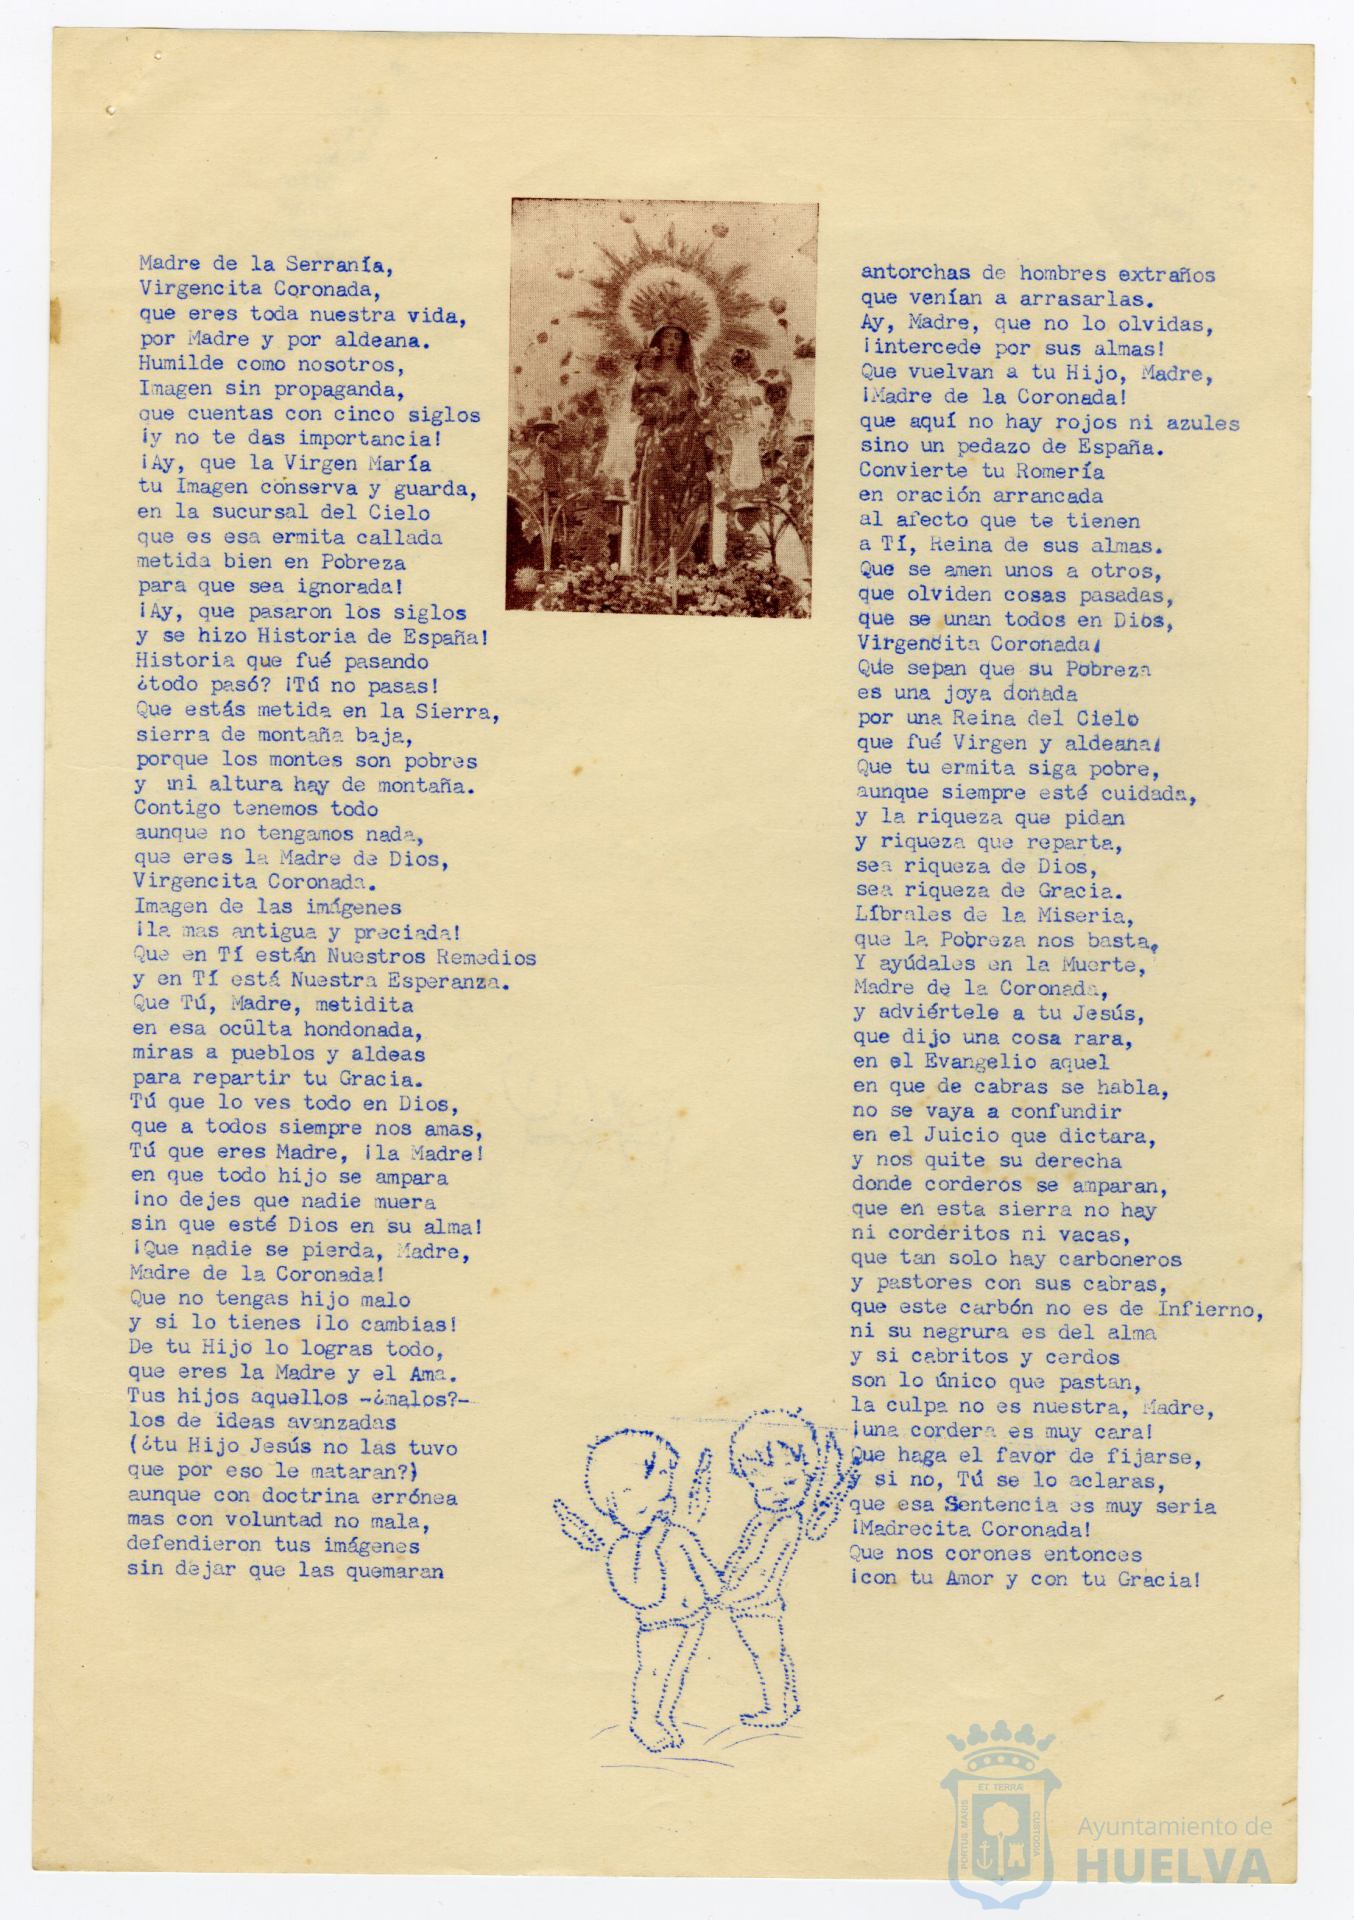 Madre de la Serranía,
Virgencita Coronada,
que eres toda nuestra vida,
por Madre y por aldeana.
Humilde como nosotros,
Imagen sin propaganda,
que cuentas con cinco siglos
¡y no te das importancia!
¡Ay, que la Virgen María
tu Imagen conserva y guarda,
en la sucursal del Cielo
que es esa ermita callada
metida bien en Pobreza
para que sea ignorada!
¡Ay, que pasaron los siglos
y se hizo Historia de España!
Historia que fué pasando
¿todo pasó? ¡Tú no pasas!
Que estás metida en la Sierra,
sierra de montaña baja,
porque los montes son pobres
y ni altura hay de montaña.
Contigo tenemos todo
aunque no tengamos nada,
que eres la Madre de Dios,
Virgencita Coronada.
Imagen de las imágenes
¡la mas antigua y preciada!
Que en Tí están Nuestros Remedios
y en Tí está Nuestra Esperanza.
Que Tú, Madre, metidita
en esa oculta hondonada,
miras a pueblos y aldeas
para repartir tu Gracia.
Tú que lo ves todo en Dios,
que a todos siempre nos amas,
Tú que eres Madre, ¡la Madre!
en que todo hijo se ampara
¡no dejes que nadie muera
sin que esté Dios en su alma!
¡Que nadie se pierda, Madre,
Madre de la Coronada!
Que no tengas hijo malo
y si lo tienes ¡lo cambias!
De tu Hijo lo logras todo,
que eres la Madre y el Ama.
Tus hijos aquellos -¿malos?-
los de ideas avanzadas
(¿tu Hijo Jesús no las tuvo
que por eso le mataran?)
aunque con doctrina errónea
mas con voluntad no mala,
defendieron tus imágenes
sin dejar que las quemaran
antorchas de hombres extraños
que venían a arrasarlas.
Ay, Madre, que no lo olvidas,
¡intercede por sus almas!
Que vuelvan a tu Hijo, Madre,
¡Madre de la Coronada!
que aquí no hay rojos ni azules
sino un pedazo de España.
Convierte tu Romería
en oración arrancada
al afecto que te tienen
a Tí, Reina de sus almas.
Que se amen unos a otros,
que olviden cosas pasadas,
que se unan todos en Dios,
Virgencita Coronada!
Que sepan que su Pobreza
es una joya donada
por una Reina del Cielo
que fué Virgen y aldeana!
Que tu ermita siga pobre,
aunque siempre esté cuidada,
y la riqueza que pidan
y riqueza que reparta,
sea riqueza de Dios,
sea riqueza de Gracia.
Líbrales de la Miseria,
que la Pobreza nos basta.
Y ayúdales en la Muerte,
Madre de la Coronada,
y adviértele a tu Jesús,
que dijo una cosa rara,
en el Evangelio aquel
en que de cabras se habla,
no se vaya a confundir
en el Juicio que dictara,
y nos quite su derecha
donde corderos se amparan,
que en esta sierra no hay
ni corderitos ni vacas,
que tan solo hay carboneros
y pastores con sus cabras,
que este carbón no es de Infierno,
ni su negrura es del alma
y si cabritos y cerdos
son lo único que pastan,
la culpa no es nuestra, Madre,
¡una cordera es muy cara!
Que haga el favor de fijarse,
y si no, Tú se lo aclaras,
que esa Sentencia es muy seria
¡Madrecita Coronada!
Que nos corones entonces
¡con tu Amor y con tu Gracia!
ET TERRÆ
PORTUS MARIS
CUSTODIA
Ayuntamiento de
HUELVA